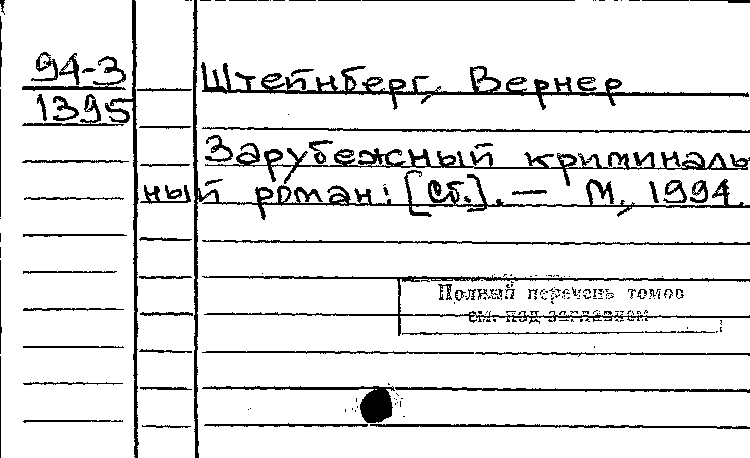 94-3
1395
Штейнберг, Вернер
Зарубежный криминаль
ный роман: [Сб.]. — М., 1994.
Полный перечень томов
см. под заглавием